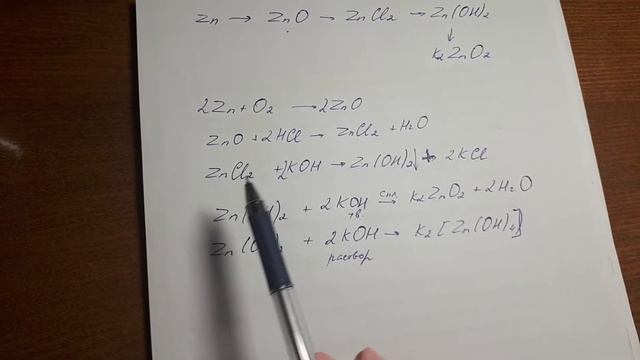 Zn → ZnO → ZnCl2 → Zn(OH)2
↓
K2ZnO2
2Zn + O2 → 2ZnO
ZnO + 2HCl → ZnCl2 + H2O
ZnCl2 + 2KOH → Zn(OH)2↓ + 2KCl
Zn(OH)2 + 2KOH тв спл → K2ZnO2 + 2H2O
Zn(OH)2 + 2KOH → K2[Zn(OH)4]
раствор